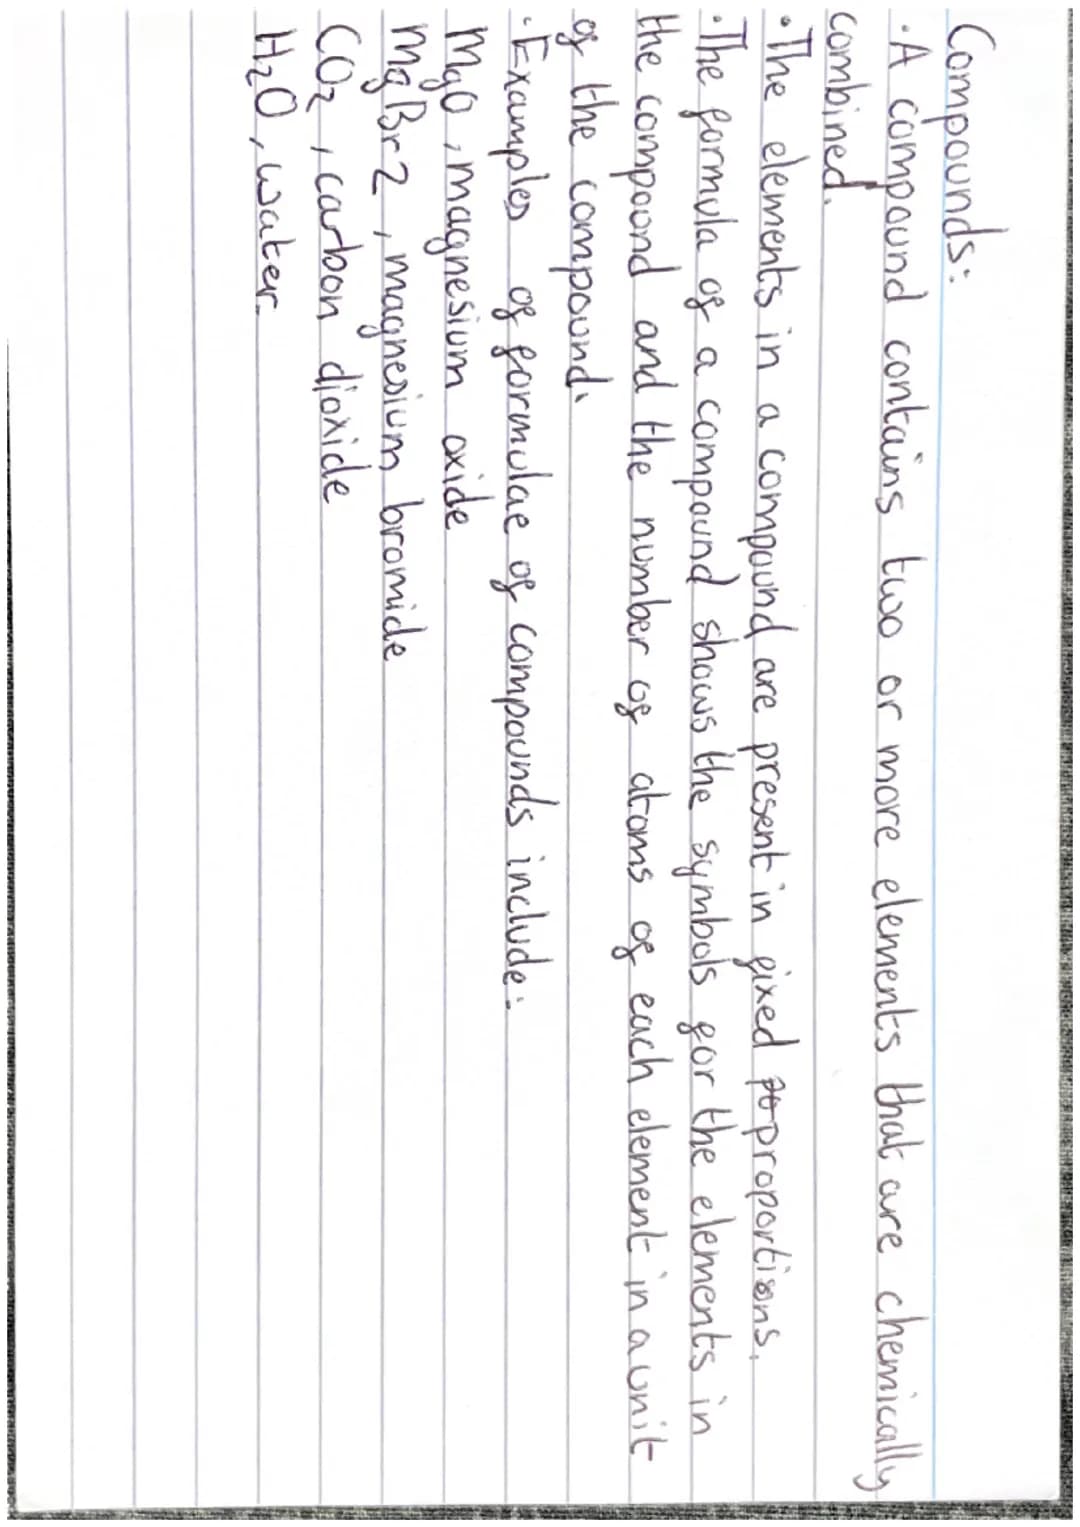 Compounds:
· A compound contains two or more elements that are chemically
combined.
· The elements in a compound are present in fixed proportions.
· The formula of a compound shows the symbols for the elements in
the compound and the number of atoms of each element in a unit
of the compound.
· Examples of formulae of compounds include:
MgO, magnesium oxide
MgBr2, magnesium bromide
CO₂, carbon dioxide
H₂O, water.